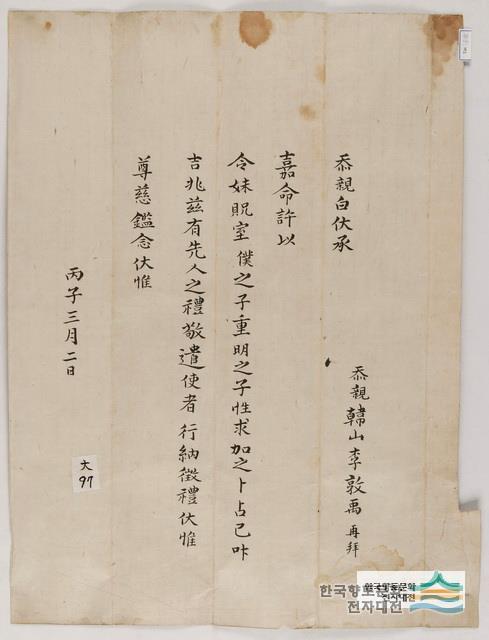 忝親韓山李敦禹 再拜
忝親白伏承
嘉命許以
令妹貺室僕之子重明之子性求加之卜占已叶
吉兆玆有先人之禮敬遣使者行納徵禮伏惟
尊慈鑑念伏惟
丙子三月二日
大
97
한국향토문화
전자대전